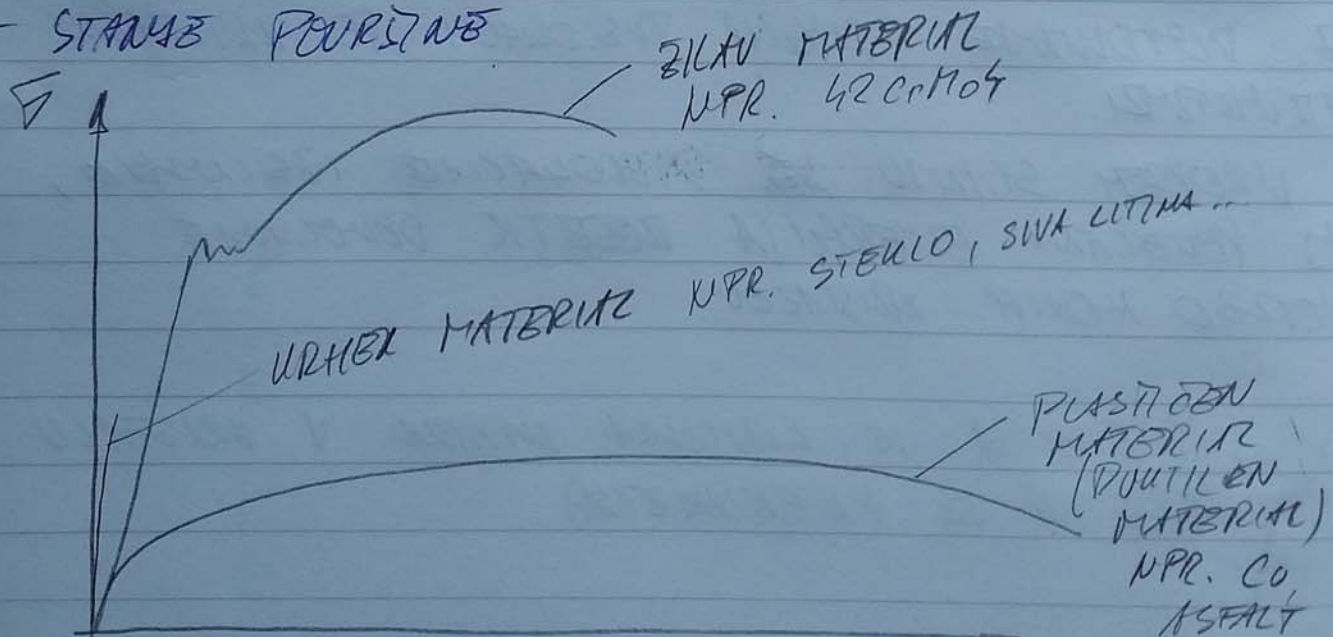 - STANJE POVRŠINE
σ
ŽILAV MATERIAL
NPR. 42CrMo4
KRHEK MATERIAL NPR. STEKLO, SIVA LITINA...
PLASTIČEN
MATERIAL
(DUKTILEN
MATERIAL)
NPR. Cu,
ASFALT